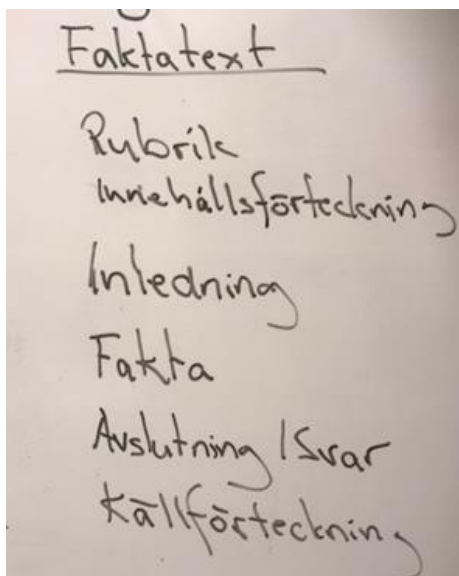 Faktatext
Rubrik
Innehållsförteckning
Inledning
Fakta
Avslutning / Svar
Källförteckning